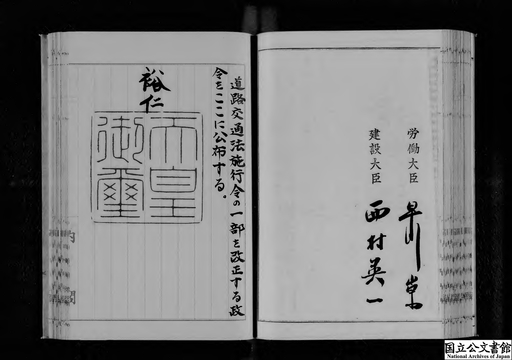 労働大臣 早川崇
建設大臣 西村英一
道路交通法施行令の一部を改正する政
令をここに公布する。
裕仁
天皇
御璽
国立公文書館
National Archives of Japan